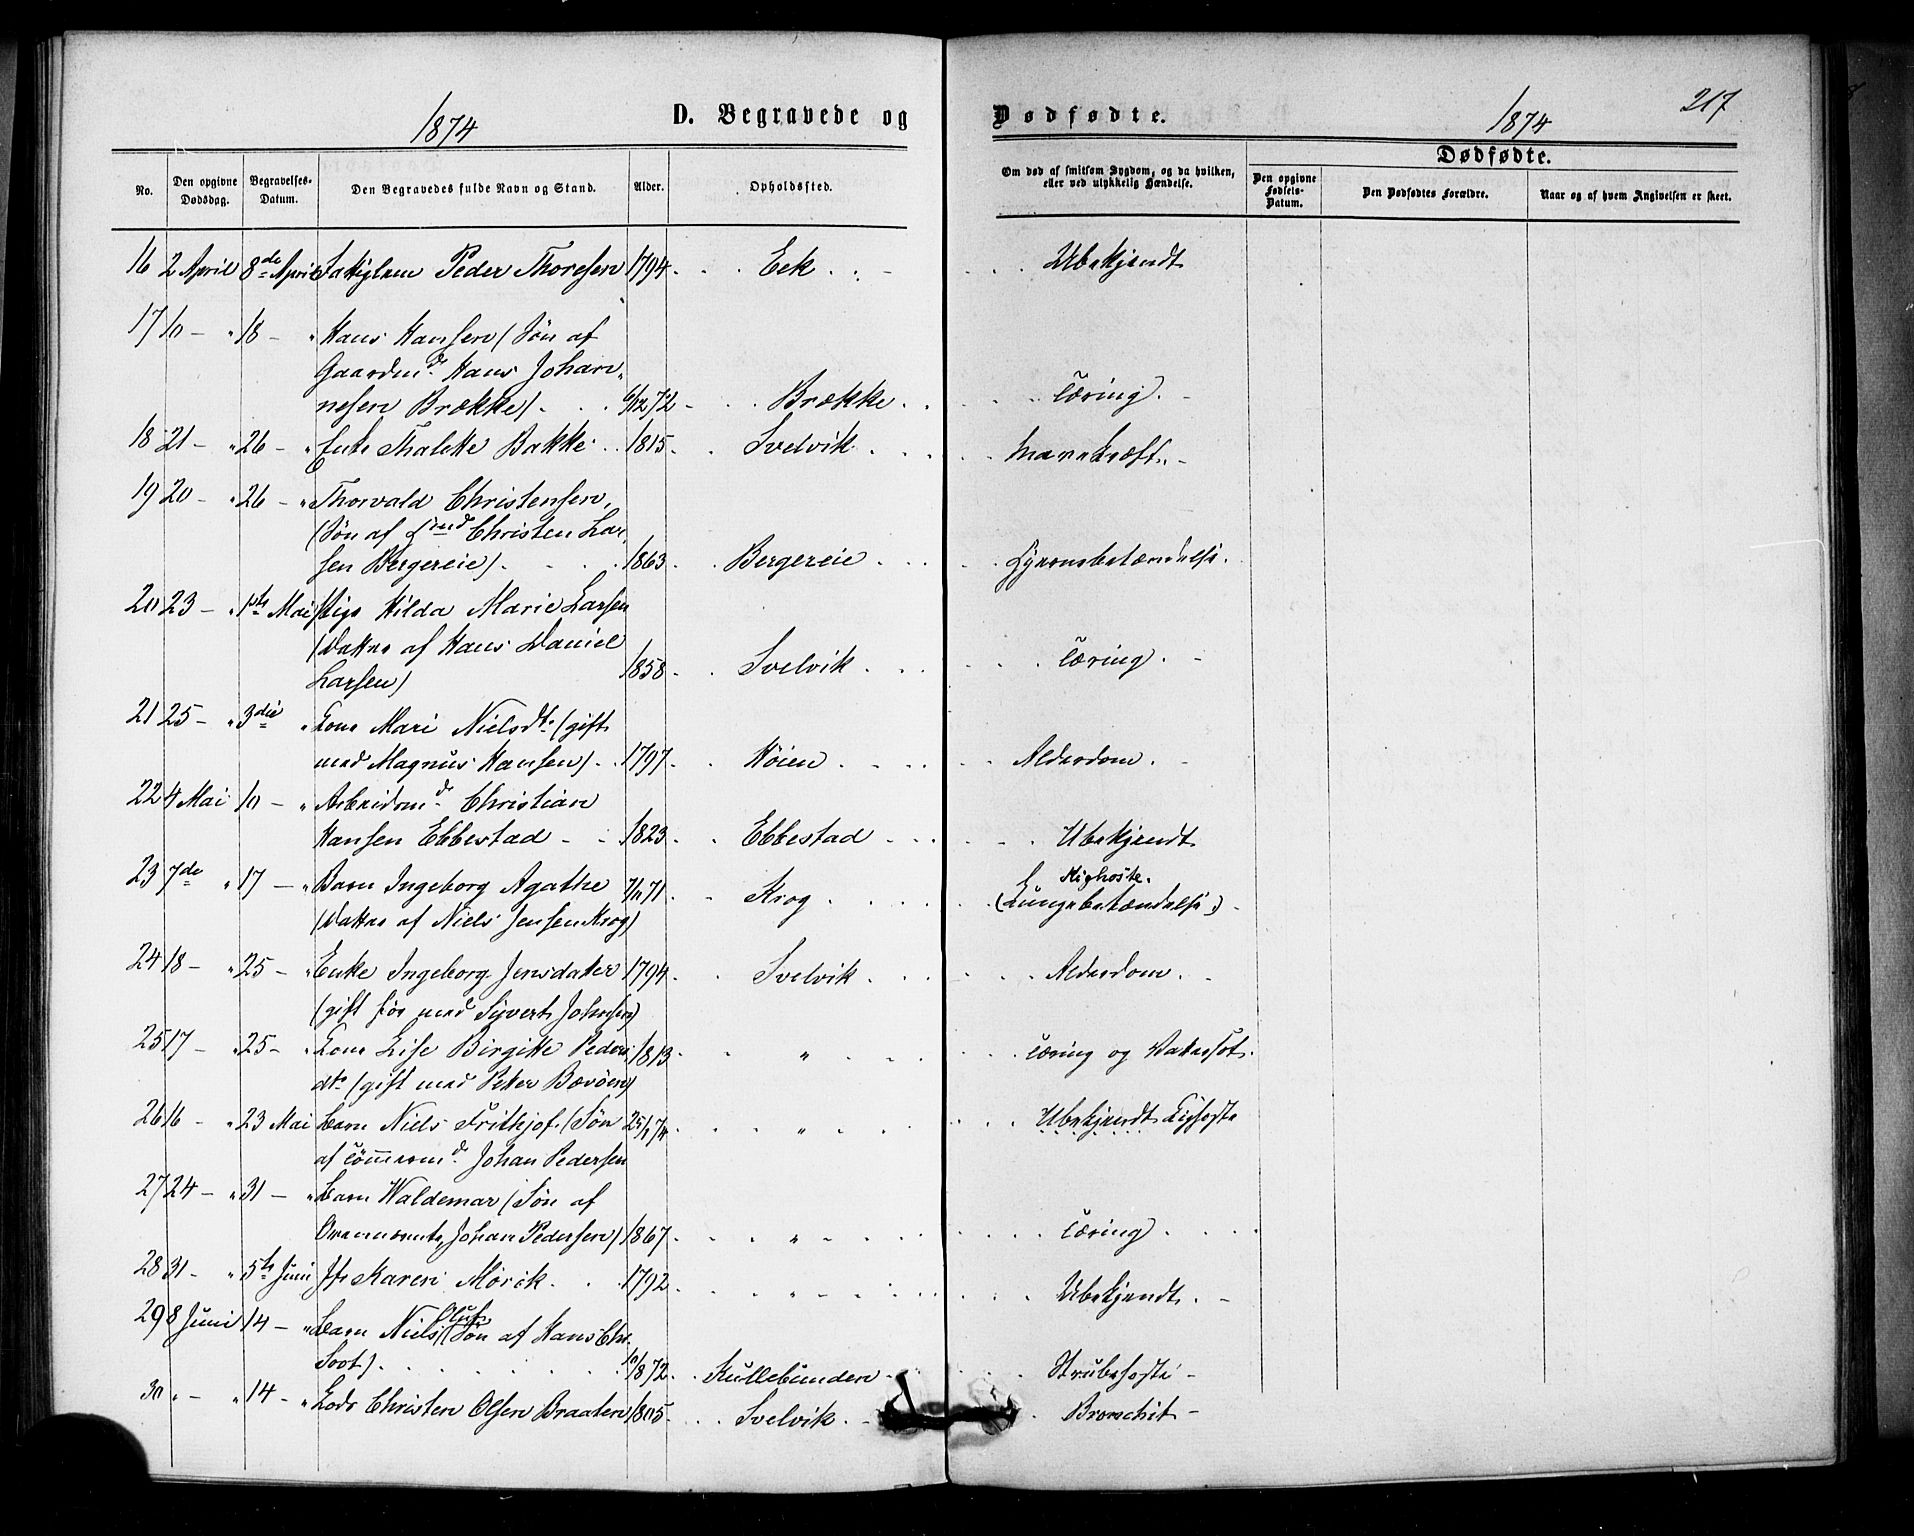 1874
D. Begravede og Dødfødte.
1874
217
Dødfødte.
No.
Den opgivne Dødsdag.
Begravelses-Datum.
Den Begravedes fulde Navn og Stand.
Alder.
Opholdssted.
Om død af smitsom Sygdom, og da hvilken, eller ved ulykkelig Hændelse.
Den opgivne Fødsels-Datum.
Den Dødfødtes Forældre.
Naar og af hvem Angivelsen er skeet.
16 2 April 8de April Peder Thoresen 1794 Eek Ubekjendt
17 10 - " 18 - " Hans Hansen (Søn af
Gaardmd. Hans Johan-
nesen Brække) 6/12 72 Brække Tæring
18 21 - " 26 - " Enke Thalette Bakke 1815 Svelvik Mavekræft
19 20 - " 26 - " Thorvald Christensen,
(Søn af Christen Lar-
sen Bergereie) 1863 Bergereie Hjernebetændelse
20 23 - " 1ste Mai Pige Hilda Marie Larsen
(Datter af Hans Daniel
Larsen) 1858 Svelvik Tæring
21 25 - " 3die " Kone Mari Nielsdt. (gift
med Magnus Hansen) 1797 Høien Alderdom
22 4 Mai 10 - " Arbeidsmd. Christian
Hansen Ebbestad 1823 Ebbestad Ubekjendt
23 7de " 17 - " Barn Ingeborg Agathe 7/11 71 Krog Kighoste
(Datter af Niels Jensen Krog) (Lungebetændelse)
24 18 - " 25 - " Enke Ingeborg Jensdatter 1794 Svelvik Alderdom
(gift før med Syvert Johnsen)
25 17 - " 25 - " Kone Lise Birgitte Peders- 1813 " Tæring og Vatersot
dtr (gift med Peter Bævøen)
26 16 - " 23 Mai Barn Niels Frithjof (Søn 25/1 74 " Ubekjendt Kighoste
af Tømmermd. Johan Pedersen
27 24 - " 31 - " Barn Waldemar (Søn af
Johan Pedersen) 1867 " Tæring
28 31 - " 5te Juni Karen Mørck 1792 " Ubekjendt
29 8 Juni 14 - " Barn Niels Oluf (Søn af Hans Chr.
Soot) 10/8 72 Kullebunden Strubehoste
30 " - " 14 - " Lods Christen Olsen Braaten 1805 Svelvik Bronchit